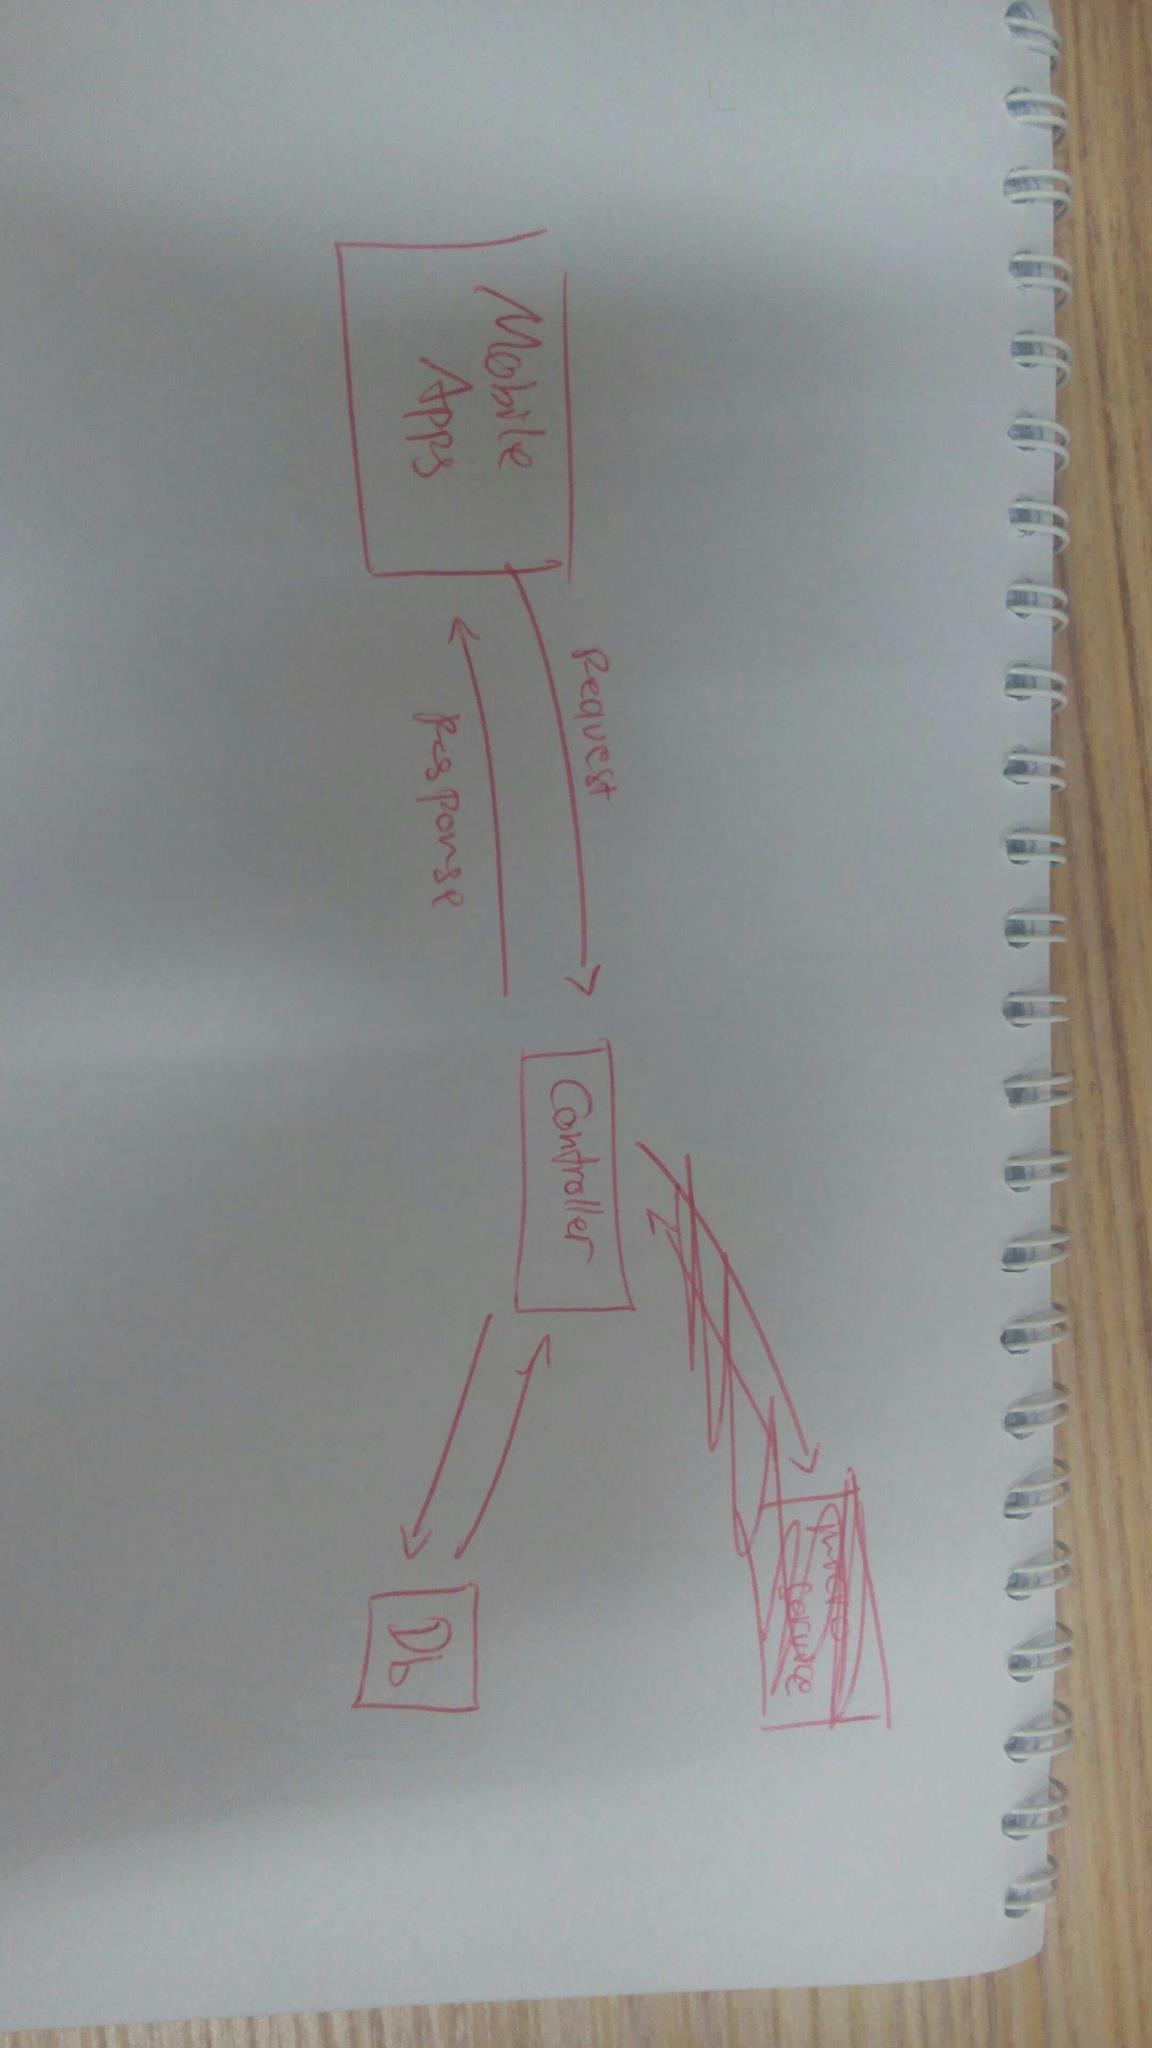 Mobile
Apps
Request
Response
Controller
Db